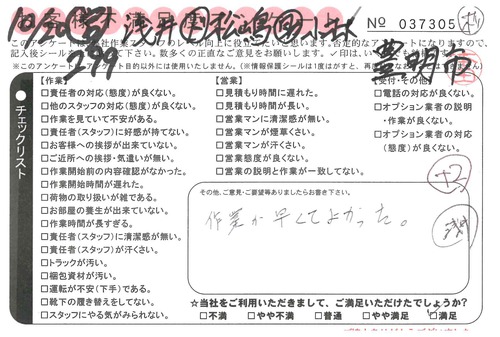 No 037305
豊明市
記入後シール
【作業】
□責任者の対応(態度)が良くない。
□他のスタッフの対応(態度)が良くない。
□作業を見ていて不安がある。
□責任者(スタッフ)に好感が持てない。
□お客様への挨拶が出来ていない。
□ご近所への挨拶・気遣いが無い。
□作業開始前の内容確認がなかった。
□作業開始時間が遅れた。
□荷物の取り扱いが雑である。
□お部屋の養生が出来ていない。
□作業時間が長すぎる。
□責任者(スタッフ)に清潔感が無い。
□責任者(スタッフ)が汗くさい。
□トラックが汚い。
□梱包資材が汚い。
□運転が不安(下手)である。
□靴下の履き替えをしてない。
□スタッフにやる気がみられない。
【営業】
□見積もり時間に遅れた。
□見積もり時間が長い。
□営業マンに清潔感が無い。
□営業マンが煙草くさい。
□営業マンが汗くさい。
□営業態度が良くない。
□営業の説明と作業が一致してない。
□電話の対応が良くない。
□オプション業者の説明
・作業が良くない。
□オプション業者の対応
(態度)が良くない。
チェックリスト
その他、ご意見・ご要望等ありましたらお書き下さい。
作業が早くてよかった。
☆当社をご利用いただきまして、ご満足いただけたでしょうか?
□不満 □やや不満 □普通 □やや満足 □満足